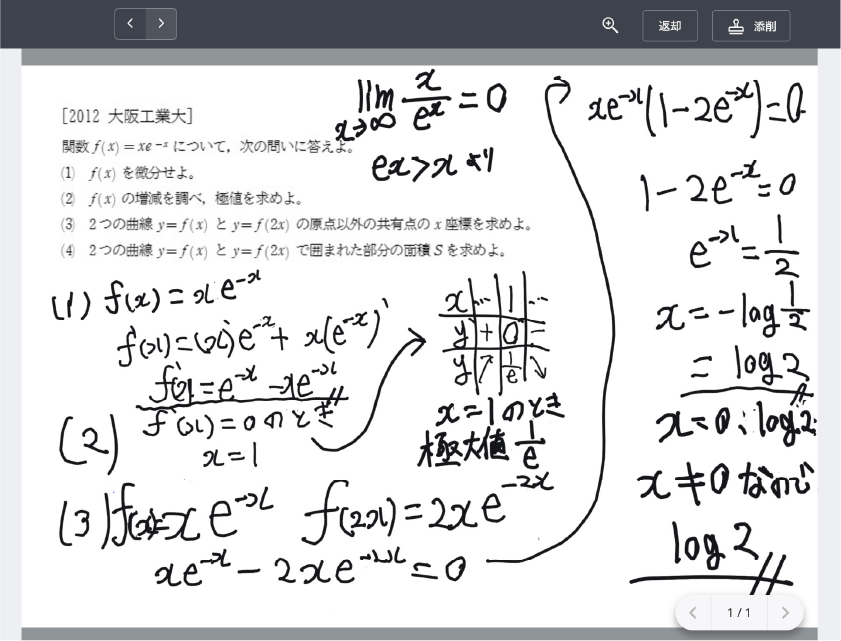 返却
添削
[2012 大阪工業大]
関数 f(x)=xe^{-x} について，次の問いに答えよ。
(1) f(x) を微分せよ。
(2) f(x) の増減を調べ，極値を求めよ。
(3) 2つの曲線 y=f(x) と y=f(2x) の原点以外の共有点の x 座標を求めよ。
(4) 2つの曲線 y=f(x) と y=f(2x) で囲まれた部分の面積 S を求めよ。
lim_{x→∞} x/e^x = 0
ex>x より
(1) f(x)=xe^{-x}
f'(x)=(x)'e^{-x}+x(e^{-x})'
f'(x)=e^{-x}-xe^{-x}
(2) f'(x)=0のとき
x=1
x … 1 …
y' + 0 −
y ↗ 1/e ↘
x=1のとき
極大値 1/e
(3) f(x)=xe^{-x} f(2x)=2xe^{-2x}
xe^{-x}-2xe^{-2x}=0
xe^{-x}(1-2e^{-x})=0
1-2e^{-x}=0
e^{-x}=1/2
x=-log 1/2
=log2
x=0, log2
x≠0なので
log2
1/1